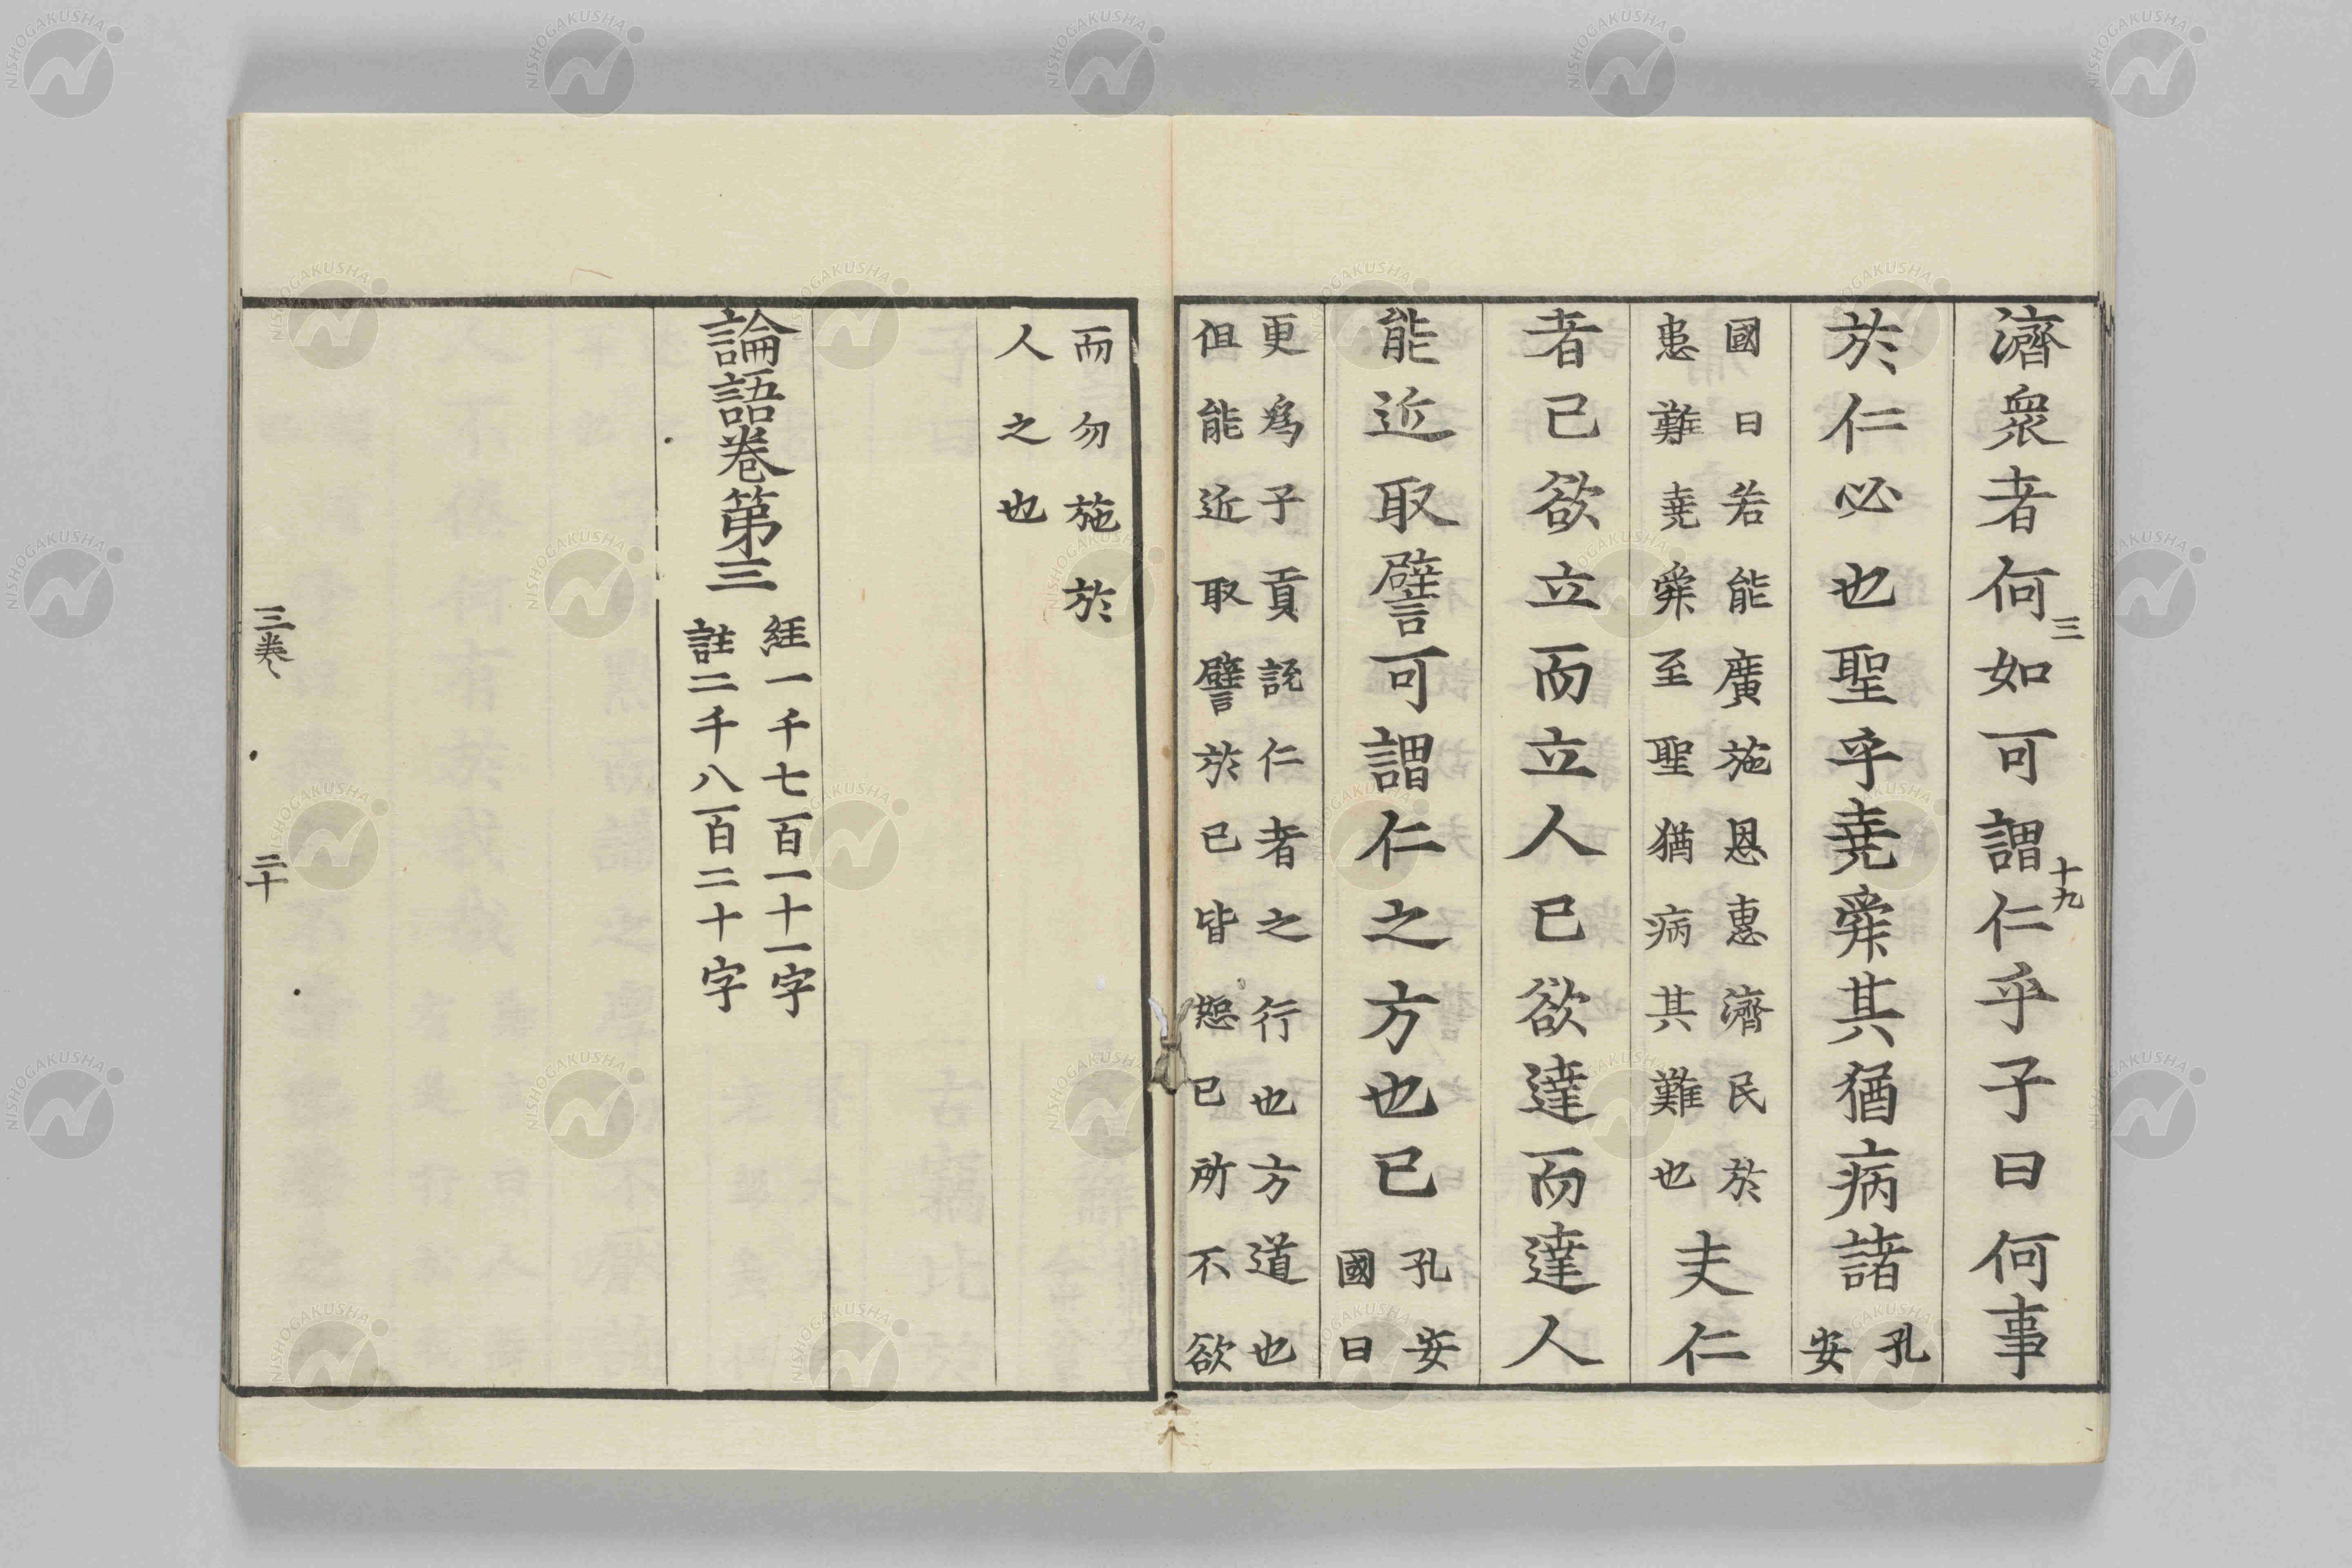 濟衆者何如可謂仁乎子曰何事
於仁必也聖乎堯舜其猶病諸孔安
國曰若能廣施恩惠濟民於
患難堯舜至聖猶病其難也夫仁
者己欲立而立人己欲達而達人
能近取譬可謂仁之方也已孔安國曰
更爲子貢說仁者之行也方道也
但能近取譬於己皆恕己所不欲
三
十九
而勿施於
人之也
論語卷第三
經一千七百一十一字
註二千八百二十字
三卷
二十
NISHOGAKUSHA